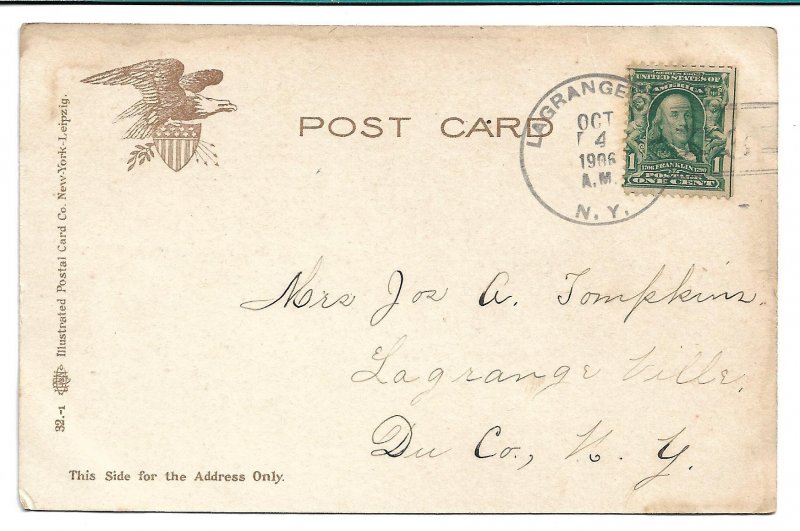 POST CARD
LAGRANGE
OCT
4
1906
A.M.
N.Y.
SERIES 1902
UNITED STATES OF
AMERICA
1706 FRANKLIN 1790
1 POSTAGE 1
ONE CENT
Mrs Jos A. Tompkins.
Lagrange Ville.
Du Co., N. Y.
This Side for the Address Only.
32.-1 Illustrated Postal Card Co. New-York-Leipzig.